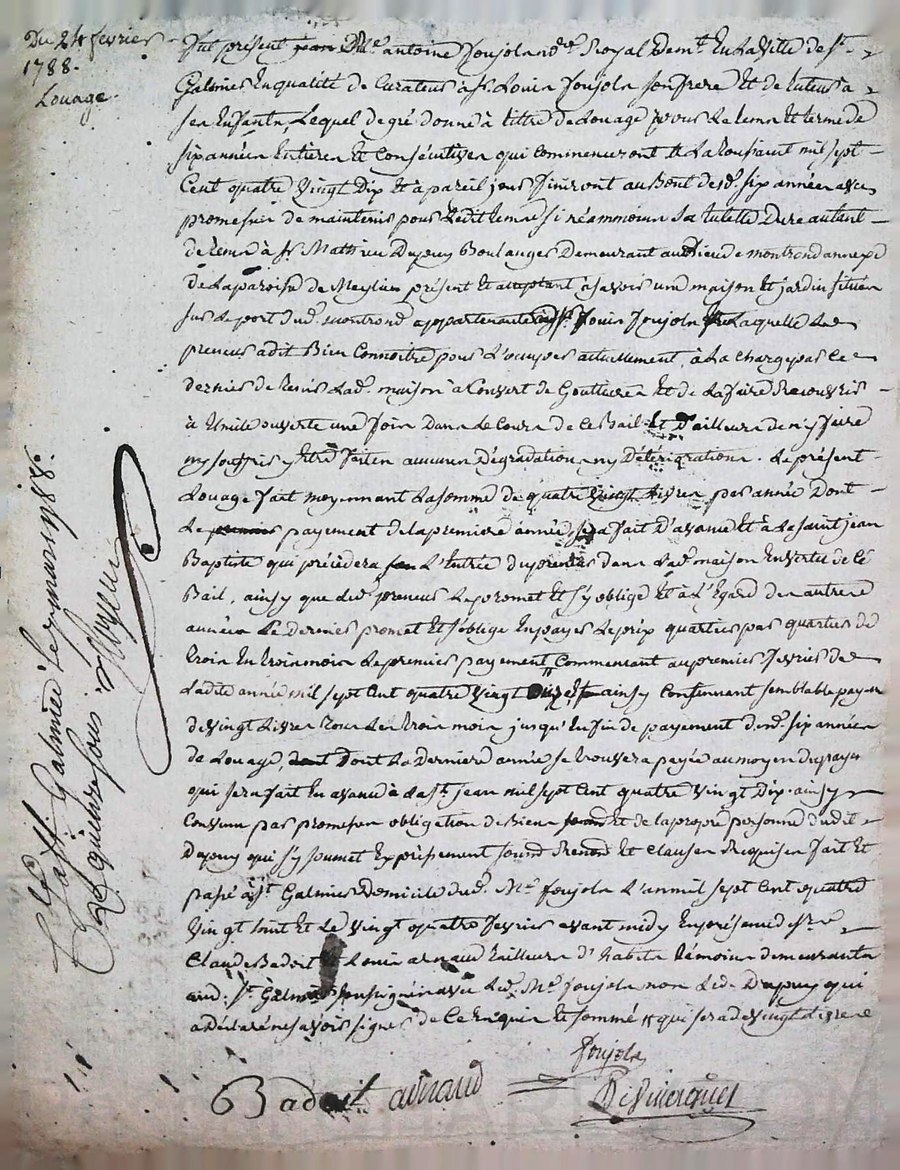 Du 24 fevrier
1788.
Louage.
fut présent Me. antoine Joujols nore. Royal demt. En la ville de St.
Galmier En qualité de Curateur a Sr. Louis Joujols son frere Et de tuteur a
ses Enfants, Lequel de gré donne à titre de Louage pour Le tems Et terme de
six années Entieres Et Consécutives qui Commenceront a La toussaint mil sept
Cent quatre vingt Dix Et à pareil jour finiront au Bout desd. six années avec
promesse de maintenir pour Ledit tems si néammoins Sa tutelle Dure autant
de tems à Sr. Mathieu Dupuy Boulanger Demeurant au Lieu de montrond annexe
de La paroisse de Meylieu présent Et acceptant a savoir une maison Et jardin situés
sur Le port dud. montrond appartenants aud. Sr. Louis Joujols Laquelle Led.
preneur a dit Bien Connoitre pour L'occuper actuellement, a La charge par Ce
dernier de tenir Lad. maison a Couvert de Gouttieres Et de La faire Recouvrir
à tuile ouverte une fois Dans Le Cours de Ce Bail Et D'ailleurs de n'y faire
ny souffrir y Etre fait en aucunes Dégradations ny Déterigrations. Le présent
Louage fait moyennant La somme de quatre vingt Livres par année Dont
Le payement de La premiere année sera fait D'avance Et à La saint jean
Baptiste qui précédera L'Entrée du preneur dans Lad. maison En vertu de Ce
Bail, ainsy que Led. preneur Le promet Et s'y oblige Et à L'Egard des autres
années Le dernier promet Et s'oblige En payer Le prix quartier par quartier de
trois En trois mois Le premier payement Commencant au premier fevrier de
Ladite année mil sept Cent quatre vingt ainsy Continuant semblable payement
de vingt Livres tous Les trois mois jusqu'Enfin de payement desd. six années
de Louage, Dont La Derniere année se trouvera payée au moyen du payemt.
qui sera fait En avance à La St. jean mil sept Cent quatre vingt Dix ainsy
Convenu par promesses obligation de Biens Et de La propre personne dudit
Dupuy qui s'y soumet Expressement sound Renond Et Clauses Requises fait Et
passé a St. Galmier Domicile dud. Me. Joujols L'an mil sept Cent quatre
vingt huit Et Le vingt quatre fevrier avant midy En présence de Sr.
Claude Badoit Et Louis arnaud tailleurs d'habits témoins demeurants
aud. St. Galmier soussignés avec Led. Me. Joujols non Led. Dupuy qui
a Déclaré ne savoir signer de Ce Enquis Et sommé qui sera de vingt Livres
Joujols
Badoit arnaud